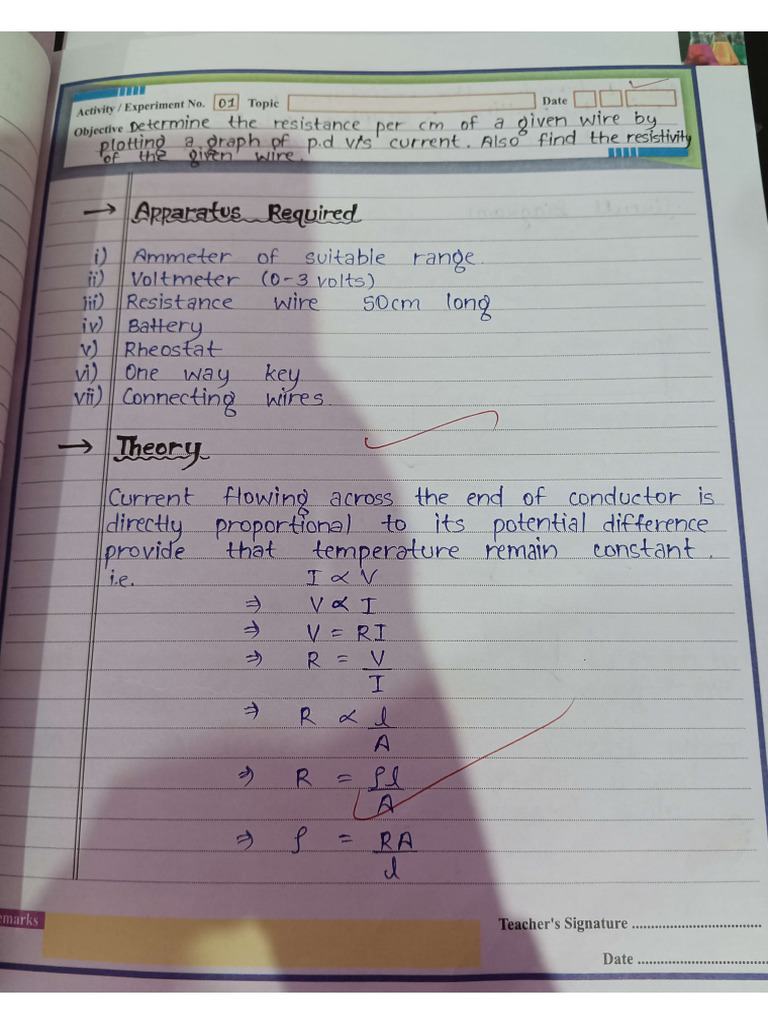 Activity / Experiment No. 01 Topic Date
Objective Determine the resistance per cm of a given wire by
plotting a graph of p.d v/s current. Also find the resistivity
of the given wire.
→ Apparatus Required
i) Ammeter of suitable range.
ii) Voltmeter (0-3 volts)
iii) Resistance wire 50cm long
iv) Battery
v) Rheostat
vi) One way key
vii) Connecting wires.
→ Theory
Current flowing across the end of conductor is
directly proportional to its potential difference
provide that temperature remain constant.
i.e. I ∝ V
⇒ V ∝ I
⇒ V = RI
⇒ R = V/I
⇒ R ∝ l/A
⇒ R = ρl/A
⇒ ρ = RA/l
emarks
Teacher's Signature ..................................
Date ..................................